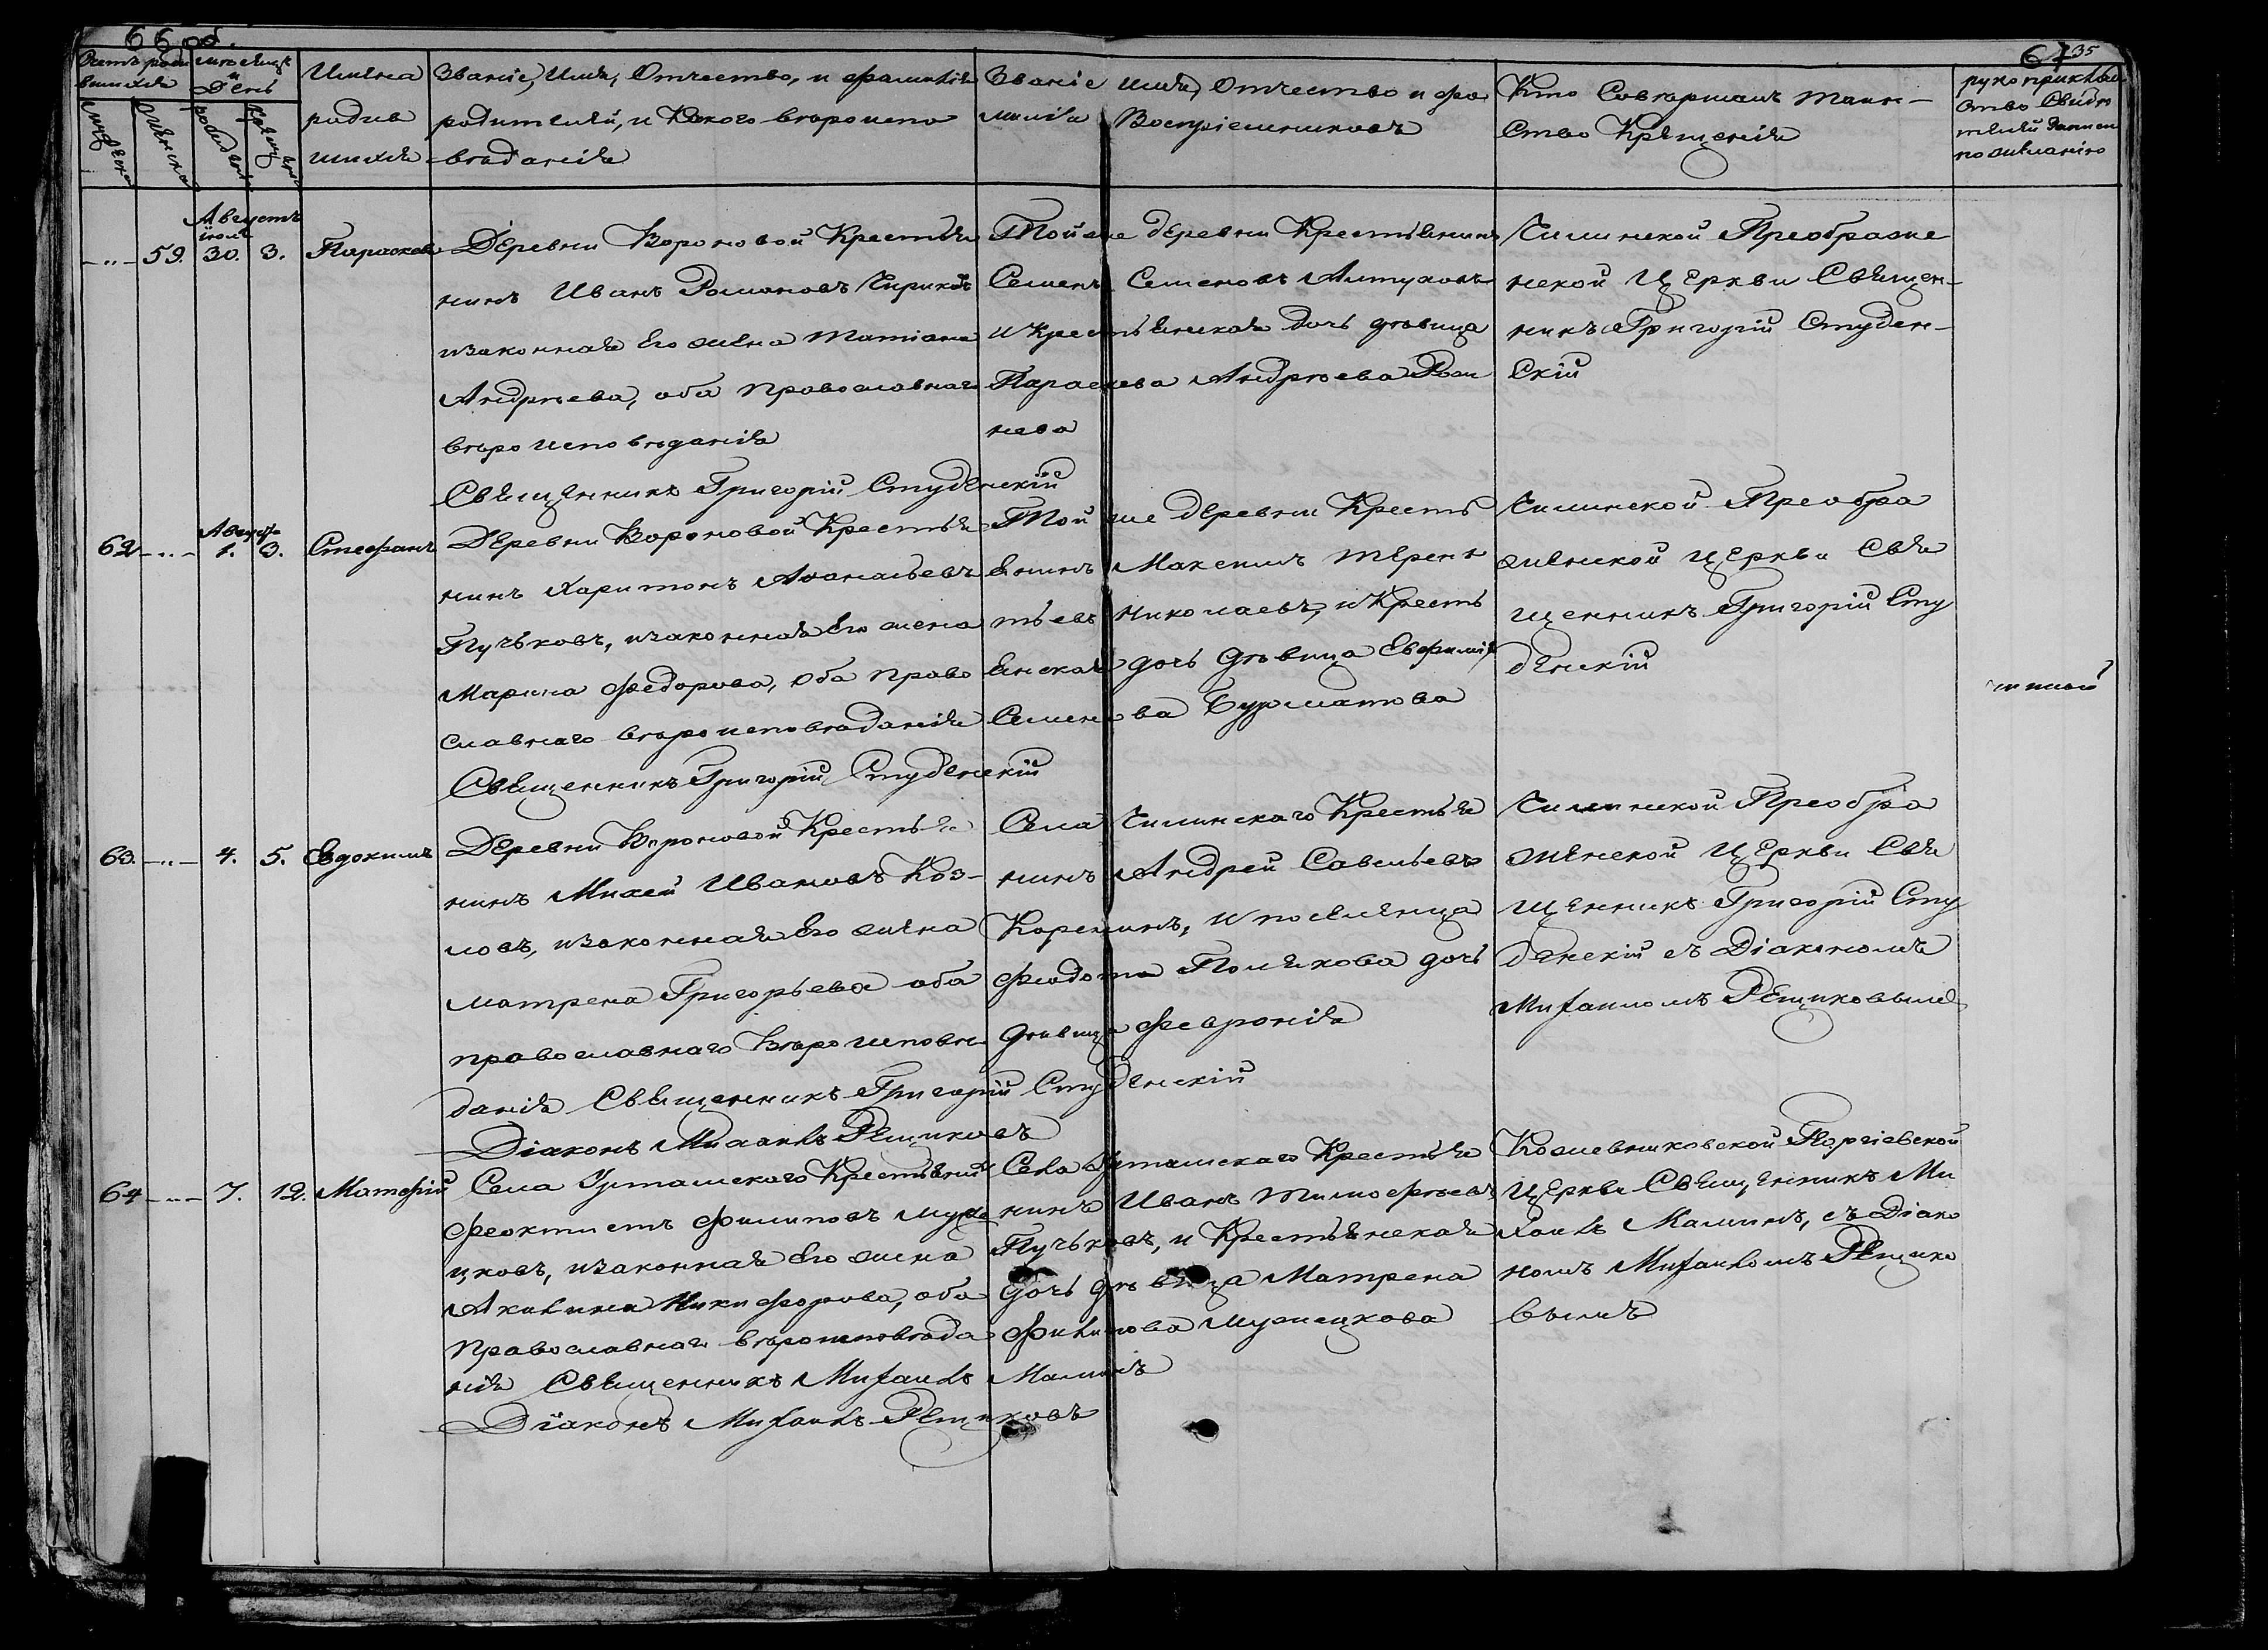 66 об.
67 35
Счетъ роди
вшихся
мужеска
женска
мѣсяцъ
и
День
рожденія
крещенія
Имена
родив
шихся
Званіе, Имя, Отчество, и фамилія
родителей, и Какого вѣроиспо
вѣданія
Званіе имя, Отчество и фа
милія Воспріемниковъ
Кто Совершалъ таин-
ство Крещенія
рукоприклад
ство Свидѣ
телей записи
по желанію
Августъ
іюля
-"- 59. 30. 3. Параскева
Деревни Вороновой Крестья
нинъ Иванъ Романовъ Чириковъ
изаконная его жена Татіана
Андрѣева, оба православнаго
вѣроисповѣданія
Священникъ Григорій Студенскій
Тойже деревни Крестьянинъ
Семенъ Семеновъ Алтуховъ
и Крестьянская дочь дѣвица
Параскева Андрѣева Фоми
нева
Чилинской Преображе
нской Церкви Священ-
никъ Григорій Студен-
скій
Август
62 -"- 1. 3. Стефанъ
Деревни Вороновой Крестья
нинъ Харитонъ Аѳанасьевъ
Пучковъ, изаконная Его жена
Марина Федорова, оба право
славнаго вѣроисповѣданія
Священникъ Григорій Студенскій
Той же деревни Кресть
янинъ Максимъ Терен
тьевъ Николаевъ, и Кресть
янская дочь дѣвица Евфимія
Семенова Бурматова
Чилинской Преобра
женской Церкви Свя
щенникъ Григорій Сту
денскій
63. -"- 4. 5. Евдокимъ
Деревни Вороновой Крестья
нинъ Михей Ивановъ Коз-
ловъ, изаконная Его жена
Матрена Григорьева оба
православнаго Вѣроисповѣ
данія Священникъ Григорій Студенскій
Діаконъ Михаилъ Рещиковъ
Села Чилинскаго Крестья
нинъ Андрей Савельевъ
Коренинъ, и поселенца
Федота Полякова дочь
дѣвица Февронія
Чилинской Преобра
женской Церкви Свя
щенникъ Григорій Сту
денскій съ Діакономъ
Михаиломъ Рещиковымъ
64 -"- 7. 12. Матфій
Села Уртамскаго Крестьянинъ
Феоктистъ Филиповъ Муже
цковъ, изаконная Его жена
Акилина Никифорова, оба
Православнаго вѣроисповѣда
нія Священникъ Михаилъ Малинъ
Діаконъ Михаилъ Рещиковъ
Села Уртамскаго Крестья
нинъ Иванъ Тимофѣевъ
Пучковъ, и Крестьянская
дочь дѣвица Матрена
Филипова Мужецкова
Кожевниковской Георгіевской
Церкви Священникъ Ми
хаилъ Малинъ, съ Діако
номъ Михаиломъ Рещико
вымъ